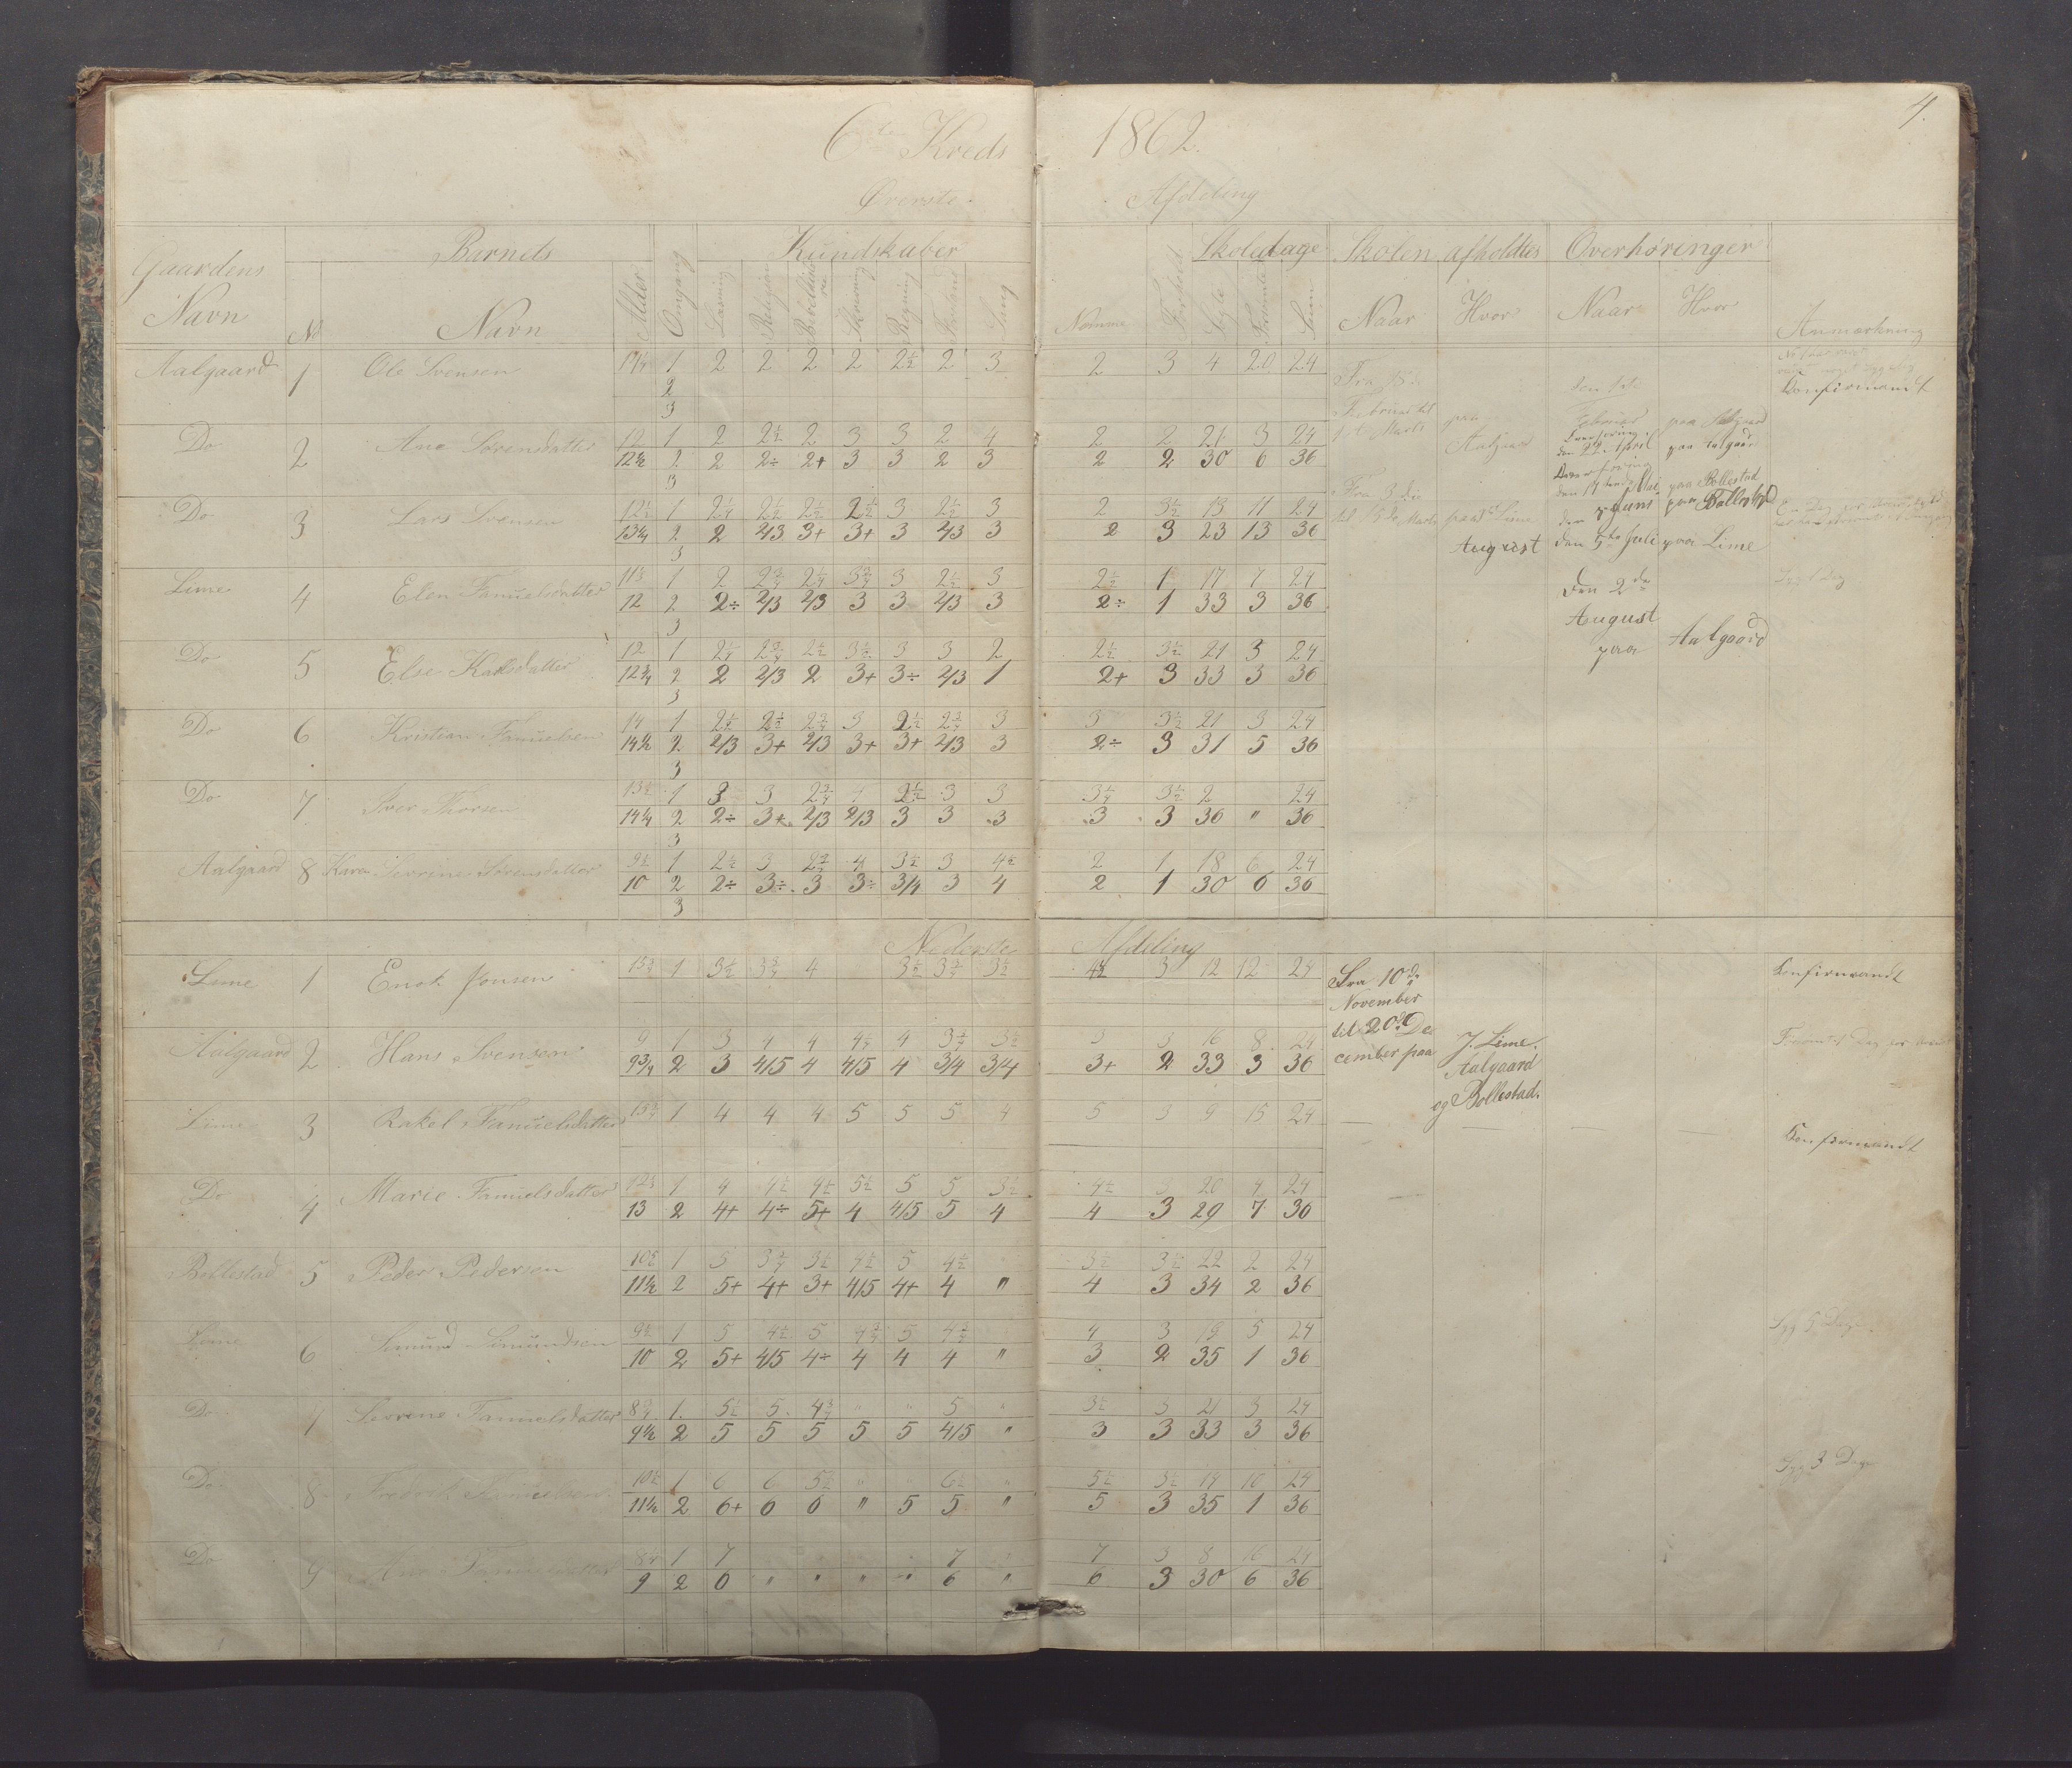 4.
6te Kreds 1862.
Øverste Afdeling
Gaardens Navn | Barnets | Omgang | Kundskaber | Skoledage | Skolen afholdtes | Overhøringer | Anmærkning
No | Navn | Alder | Læsning | Religion | Skrivning | Regning | Sang | Nemme | Forhold | Søgte | Forsømte | Sum | Naar | Hvor | Naar | Hvor
Aalgaard 1 Ole Svensen 1 2 2 2 2 2½ 2 3 2 3 4 20 24 Konfirmandt
2
3
Do 2 Ane Sørensdatter 12 1 2 2½ 2 3 3 2 4 2 2 21 3 24
12½ 2 2 2÷ 2+ 3 3 2 3 2 2 30 6 36
3
Do 3 Lars Svensen 12½ 1 2¼ 2½ 2½ 2½ 3 2½ 3 2 3½ 13 11 24
13¼ 2 2 2/3 3+ 3+ 3 2/3 3 2 3 23 13 36
3
Lime 4 Elen Samuelsdatter 11½ 1 2 2¾ 2¼ 3¾ 3 2½ 3 2½ 1 17 7 24
12 2 2÷ 2/3 2/3 3 3 2/3 3 2÷ 1 33 3 36
3
Do 5 Else Karlsdatter 12 1 2¼ 2¾ 2½ 3½ 3 3 2 2½ 3½ 21 3 24
12¾ 2 2 2/3 2 3+ 3÷ 2/3 1 2+ 3 33 3 36
3
Do 6 Kristian Samuelsen 14 1 2½ 2½ 2¾ 3 2½ 2¾ 3 3 3½ 21 3 24
14½ 2 2/3 3+ 2/3 3+ 3+ 2/3 3 2÷ 3 31 5 36
3
Do 7 Iver Thorsen 13½ 1 3 3 2¾ 4 2½ 3 3 3¼ 3½ 2 24
14¼ 2 2÷ 3+ 2/3 2/3 3 3 3 3 3 36 " 36
3
Aalgaard 8 Karen Severine Sørensdatter 9½ 1 2½ 3 2¾ 4 3½ 3 4½ 2 1 18 6 24
10 2 2÷ 3÷ 3 3÷ 3/4 3 4 2 1 30 6 36
3
Fra 15de Februar til 1st Marts paa Aalgaard
Fra 3die til 15de Marts paa Lime
August
den 1ste Februar paa Aalgaard
Overhøring den 22 April paa Aalgaard
Overhøring den 17tende Mai paa Bollestad
den 7 Juni paa Bollestad
den 5te Juli paa Lime
Den 2den August paa Aalgaard
Syg 1 Dag
Nederste Afdeling
Lime 1 Enok Jonsen 15¾ 1 3½ 3¾ 4 3½ 3¾ 3½ 4½ 3 12 12 24 Konfirmandt
Aalgaard 2 Hans Svensen 9 1 3 4 4 4½ 4 3½ 3½ 3 3 16 8 24
9¾ 2 3 4/5 4 4/5 4 3/4 3/4 3+ 2 33 3 36
Lime 3 Rakel Samuelsdatter 15¾ 1 4 4 4 5 5 5 4 5 3 9 15 24 Konfirmandt
Do 4 Marie Samuelsdatter 12½ 1 4 4½ 4½ 5½ 5 5 3½ 4½ 3 20 4 24
13 2 4+ 4÷ 5+ 4 4/5 5 4 4 3 29 7 36
Bollestad 5 Peder Pedersen 10¾ 1 5 3¾ 3½ 4½ 5 4½ 3½ 3½ 22 2 24
11½ 2 5+ 4+ 3+ 4/5 4+ 4 " 4 3 34 2 36
Lime 6 Simund Simundsen 9½ 1 5 4½ 5 4¾ 5 4¾ 4 3 19 5 24 Syg 5 Dage
10 2 5+ 4/5 4÷ 4 4 4 " 3 2 35 1 36
Do 7 Severine Samuelsdatter 8¾ 1 5½ 5 4¾ " " 5 " 3½ 3 21 3 24
9½ 2 5 5 5 5 5 4/5 " 3 3 33 3 36
Do 8 Fredrik Samuelsen 10½ 1 6 6 5½ " " 6½ " 5½ 3½ 14 10 24 Syg 3 Dage
11¼ 2 6+ 6 6 " 5 5 " 5 3 35 1 36
Do 9 Ane Samuelsdatter 8¼ 1 7 7 7 3 8 16 24
9 2 6 " " " " 6 " 6 3 30 6 36
Fra 10de
November
til 20de De
cember paa
Lime.
Aalgaard
og Bollestad.